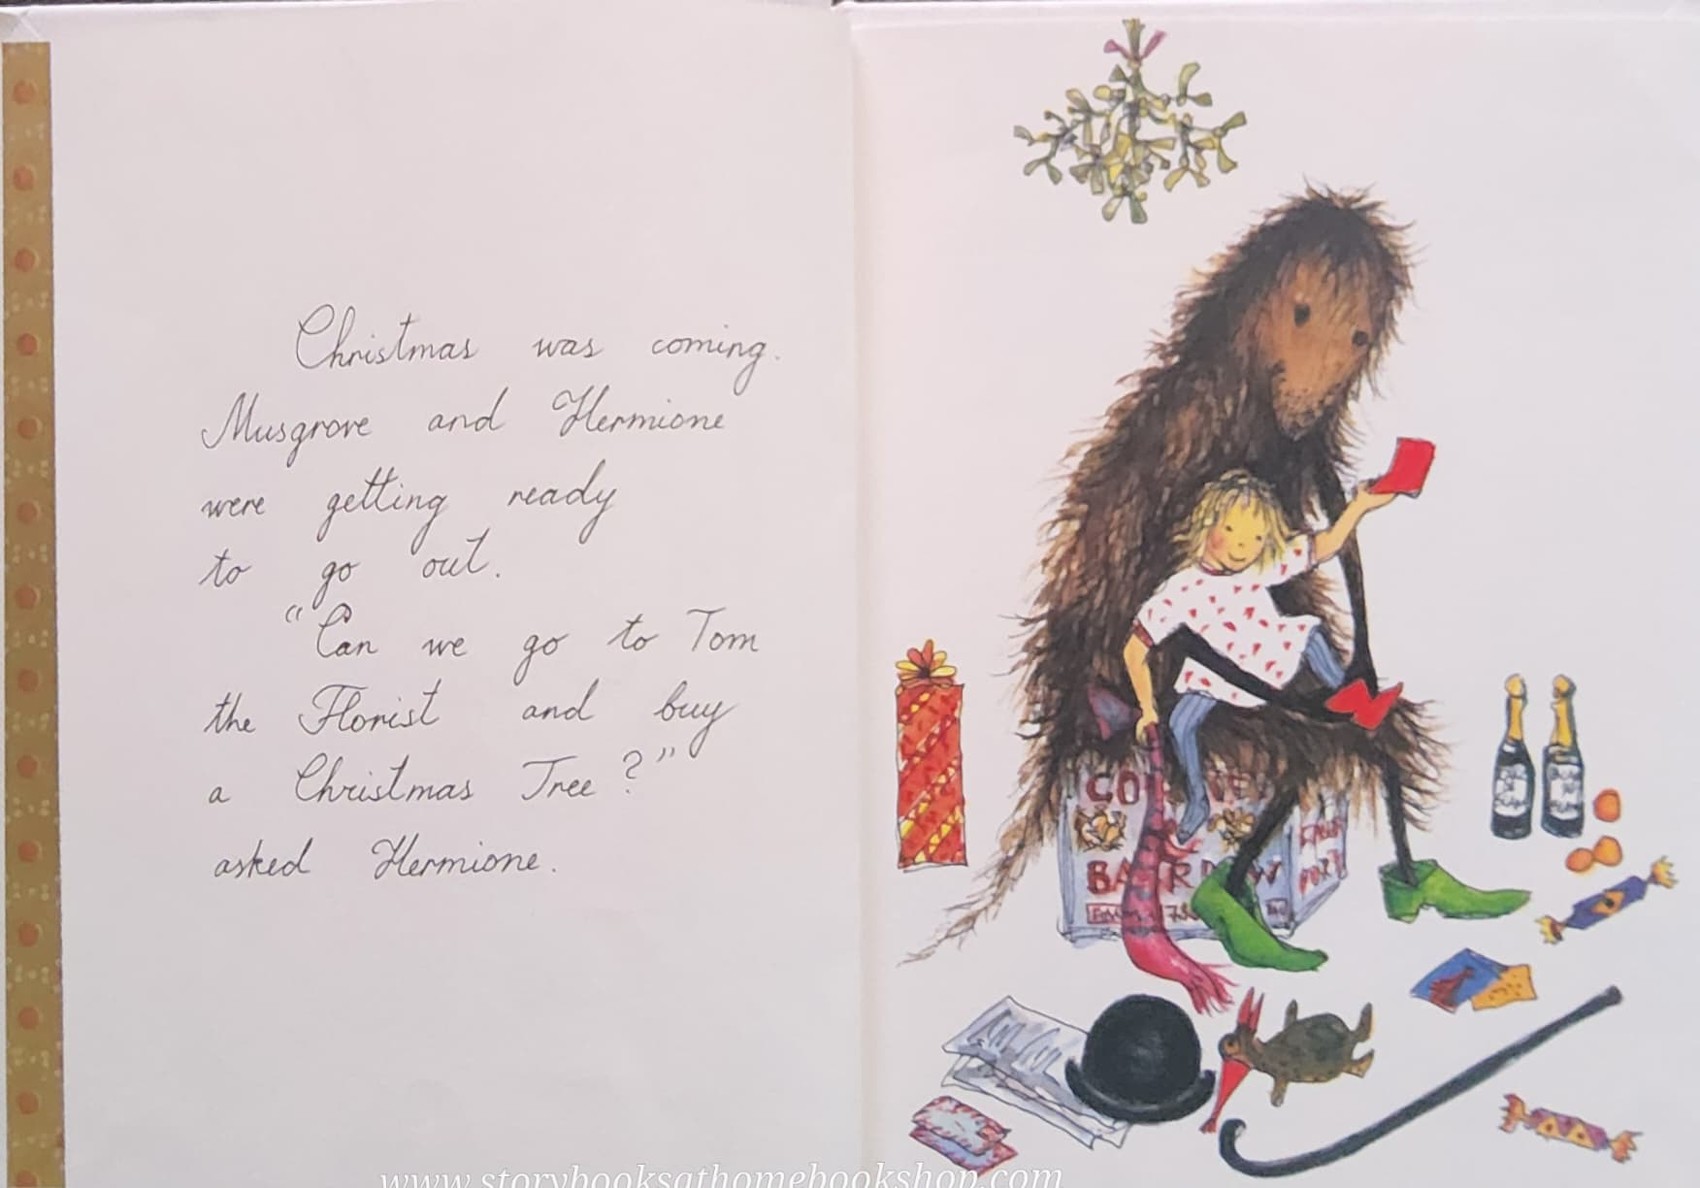 Christmas was coming.
Musgrove and Hermione
were getting ready
to go out.
"Can we go to Tom
the Florist and buy
a Christmas Tree?"
asked Hermione.
www.storybooksathomebookshop.com